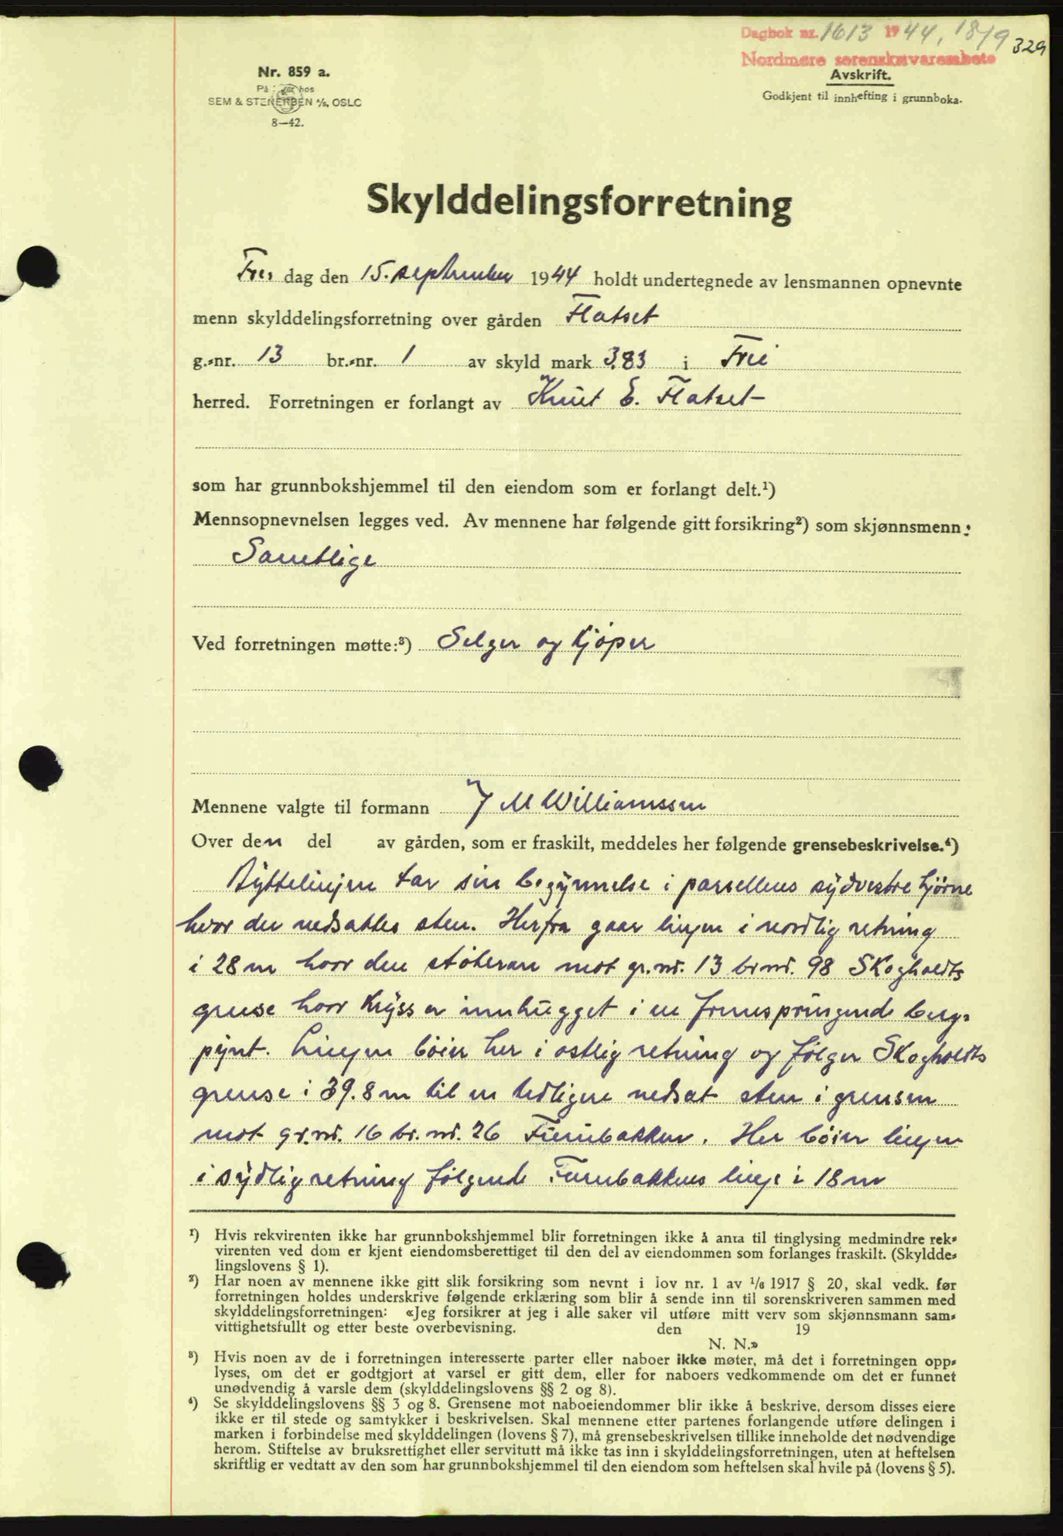 Dagbok nr. 1613 1944, 18/9
329
Nordmøre sorenskriverembete
Nr. 859 a.
Avskrift.
SEM & STENERSEN A/S, OSLO
Godkjent til innhefting i grunnboka.
8—42.
Skylddelingsforretning
Fre dag den 15. september 1944 holdt undertegnede av lensmannen opnevnte
menn skylddelingsforretning over gården Flatset
g.-nr. 13 br.-nr. 1 av skyld mark 3,83 i Frei
herred. Forretningen er forlangt av Knut E. Flatset
som har grunnbokshjemmel til den eiendom som er forlangt delt.¹)
Mennsopnevnelsen legges ved. Av mennene har følgende gitt forsikring²) som skjønnsmenn:
Samtlige
Ved forretningen møtte:³) Selger og kjøper
Mennene valgte til formann J M Williamssen
Over den del av gården, som er fraskilt, meddeles her følgende grensebeskrivelse.⁴)
Byttelinjen tar sin begynnelse i parsellens sydvestre hjørne
hvor der nedsattes sten. Herfra gaar linjen i nordlig retning
i 28 m hvor den støter an mot gr.nr. 13 br.nr. 98 Skogholdts
grense hvor kryss er innhugget i en fremspringende berg-
pynt. Linjen bøier her i østlig retning og følger Skogholdts
grense i 39.8 m til en tidligere nedsat sten i grensen
mot gr.nr. 16 br.nr. 26 Furubakken. Her bøier linjen
i sydlig retning følgende Furubakkens linje i 18 m
¹) Hvis rekvirenten ikke har grunnbokshjemmel blir forretningen ikke å anta til tinglysing medmindre rek-
virenten ved dom er kjent eiendomsberettiget til den del av eiendommen som forlanges fraskilt. (Skyldde-
lingslovens § 1).
²) Har noen av mennene ikke gitt slik forsikring som nevnt i lov nr. 1 av 1/6 1917 § 20, skal vedk. før
forretningen holdes underskrive følgende erklæring som blir å sende inn til sorenskriveren sammen med
skylddelingsforretningen: «Jeg forsikrer at jeg i alle saker vil utføre mitt verv som skjønnsmann sam-
vittighetsfullt og etter beste overbevisning. den 19
N. N.»
³) Hvis noen av de i forretningen interesserte parter eller naboer ikke møter, må det i forretningen opp-
lyses, om det er godtgjort at varsel er gitt dem, eller for naboers vedkommende om det er funnet
unødvendig å varsle dem (skylddelingslovens §§ 2 og 8).
⁴) Se skylddelingslovens §§ 3 og 8. Grensene mot naboeiendommer blir ikke å beskrive, dersom disses eiere
ikke er til stede og samtykker i beskrivelsen. Skal mennene etter partenes forlangende utføre delingen i
marken i forbindelse med skylddelingen (lovens § 7), må grensebeskrivelsen tillike inneholde det nødvendige
herom. Stiftelse av bruksrettighet eller servitutt må ikke tas inn i skylddelingsforretningen, uten at heftelsen
skriftlig er vedtatt av den som har grunnbokshjemmel til den eiendom som heftelsen skal hvile på (lovens § 5).